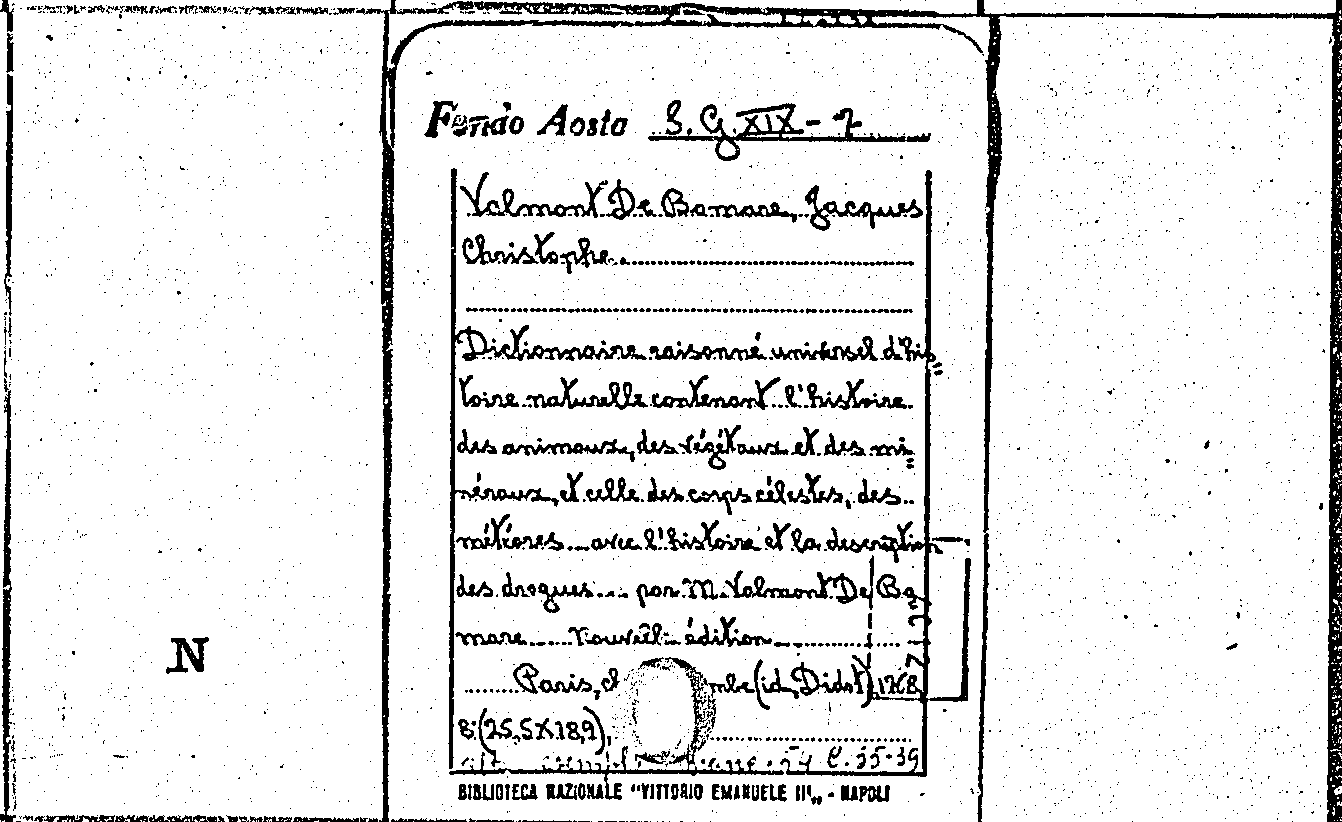 Fondo Aosta S. G. XIX - 7
Valmont De Bomare, Jacques
Christophe.
Dictionnaire raisonné universel d'his
toire naturelle contenant l'histoire
des animaux, des végétaux et des mi
néraux, et celle des corps célestes, des
météores... avec l'histoire et la description
des drogues... par M. Valmont De Bo
mare... Nouvelle édition
Paris, (id, Didot) 1768
8:(25,5X18,9),
C. 35-39
N
BIBLIOTECA NAZIONALE "VITTORIO EMANUELE III„ - NAPOLI